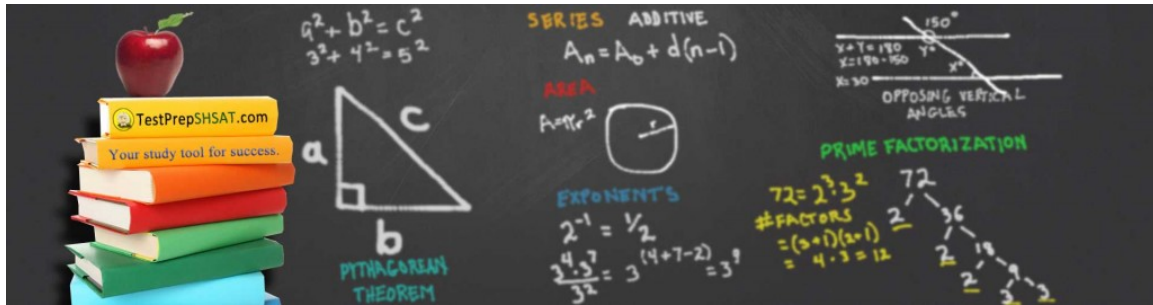 TestPrepSHSAT.com
Your study tool for success.
a² + b² = c²
3² + 4² = 5²
a
c
b
PYTHAGOREAN
THEOREM
SERIES ADDITIVE
Aₙ = A₀ + d(n-1)
AREA
A=πr²
r
EXPONENTS
2⁻¹ = ½
3⁴·3⁷/3² = 3⁽⁴⁺⁷⁻²⁾ = 3⁹
150°
X+Y=180
X=180-150
X=30
Y°
X°
OPPOSING VERTICAL
ANGLES
PRIME FACTORIZATION
72=2³·3²
#FACTORS
=(3+1)(2+1)
= 4·3=12
72
2 36
2 18
2 9
3 3